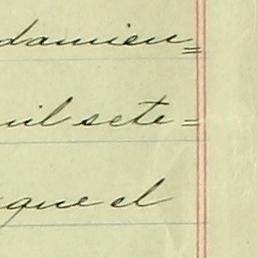 damien=
mil sete=
que el